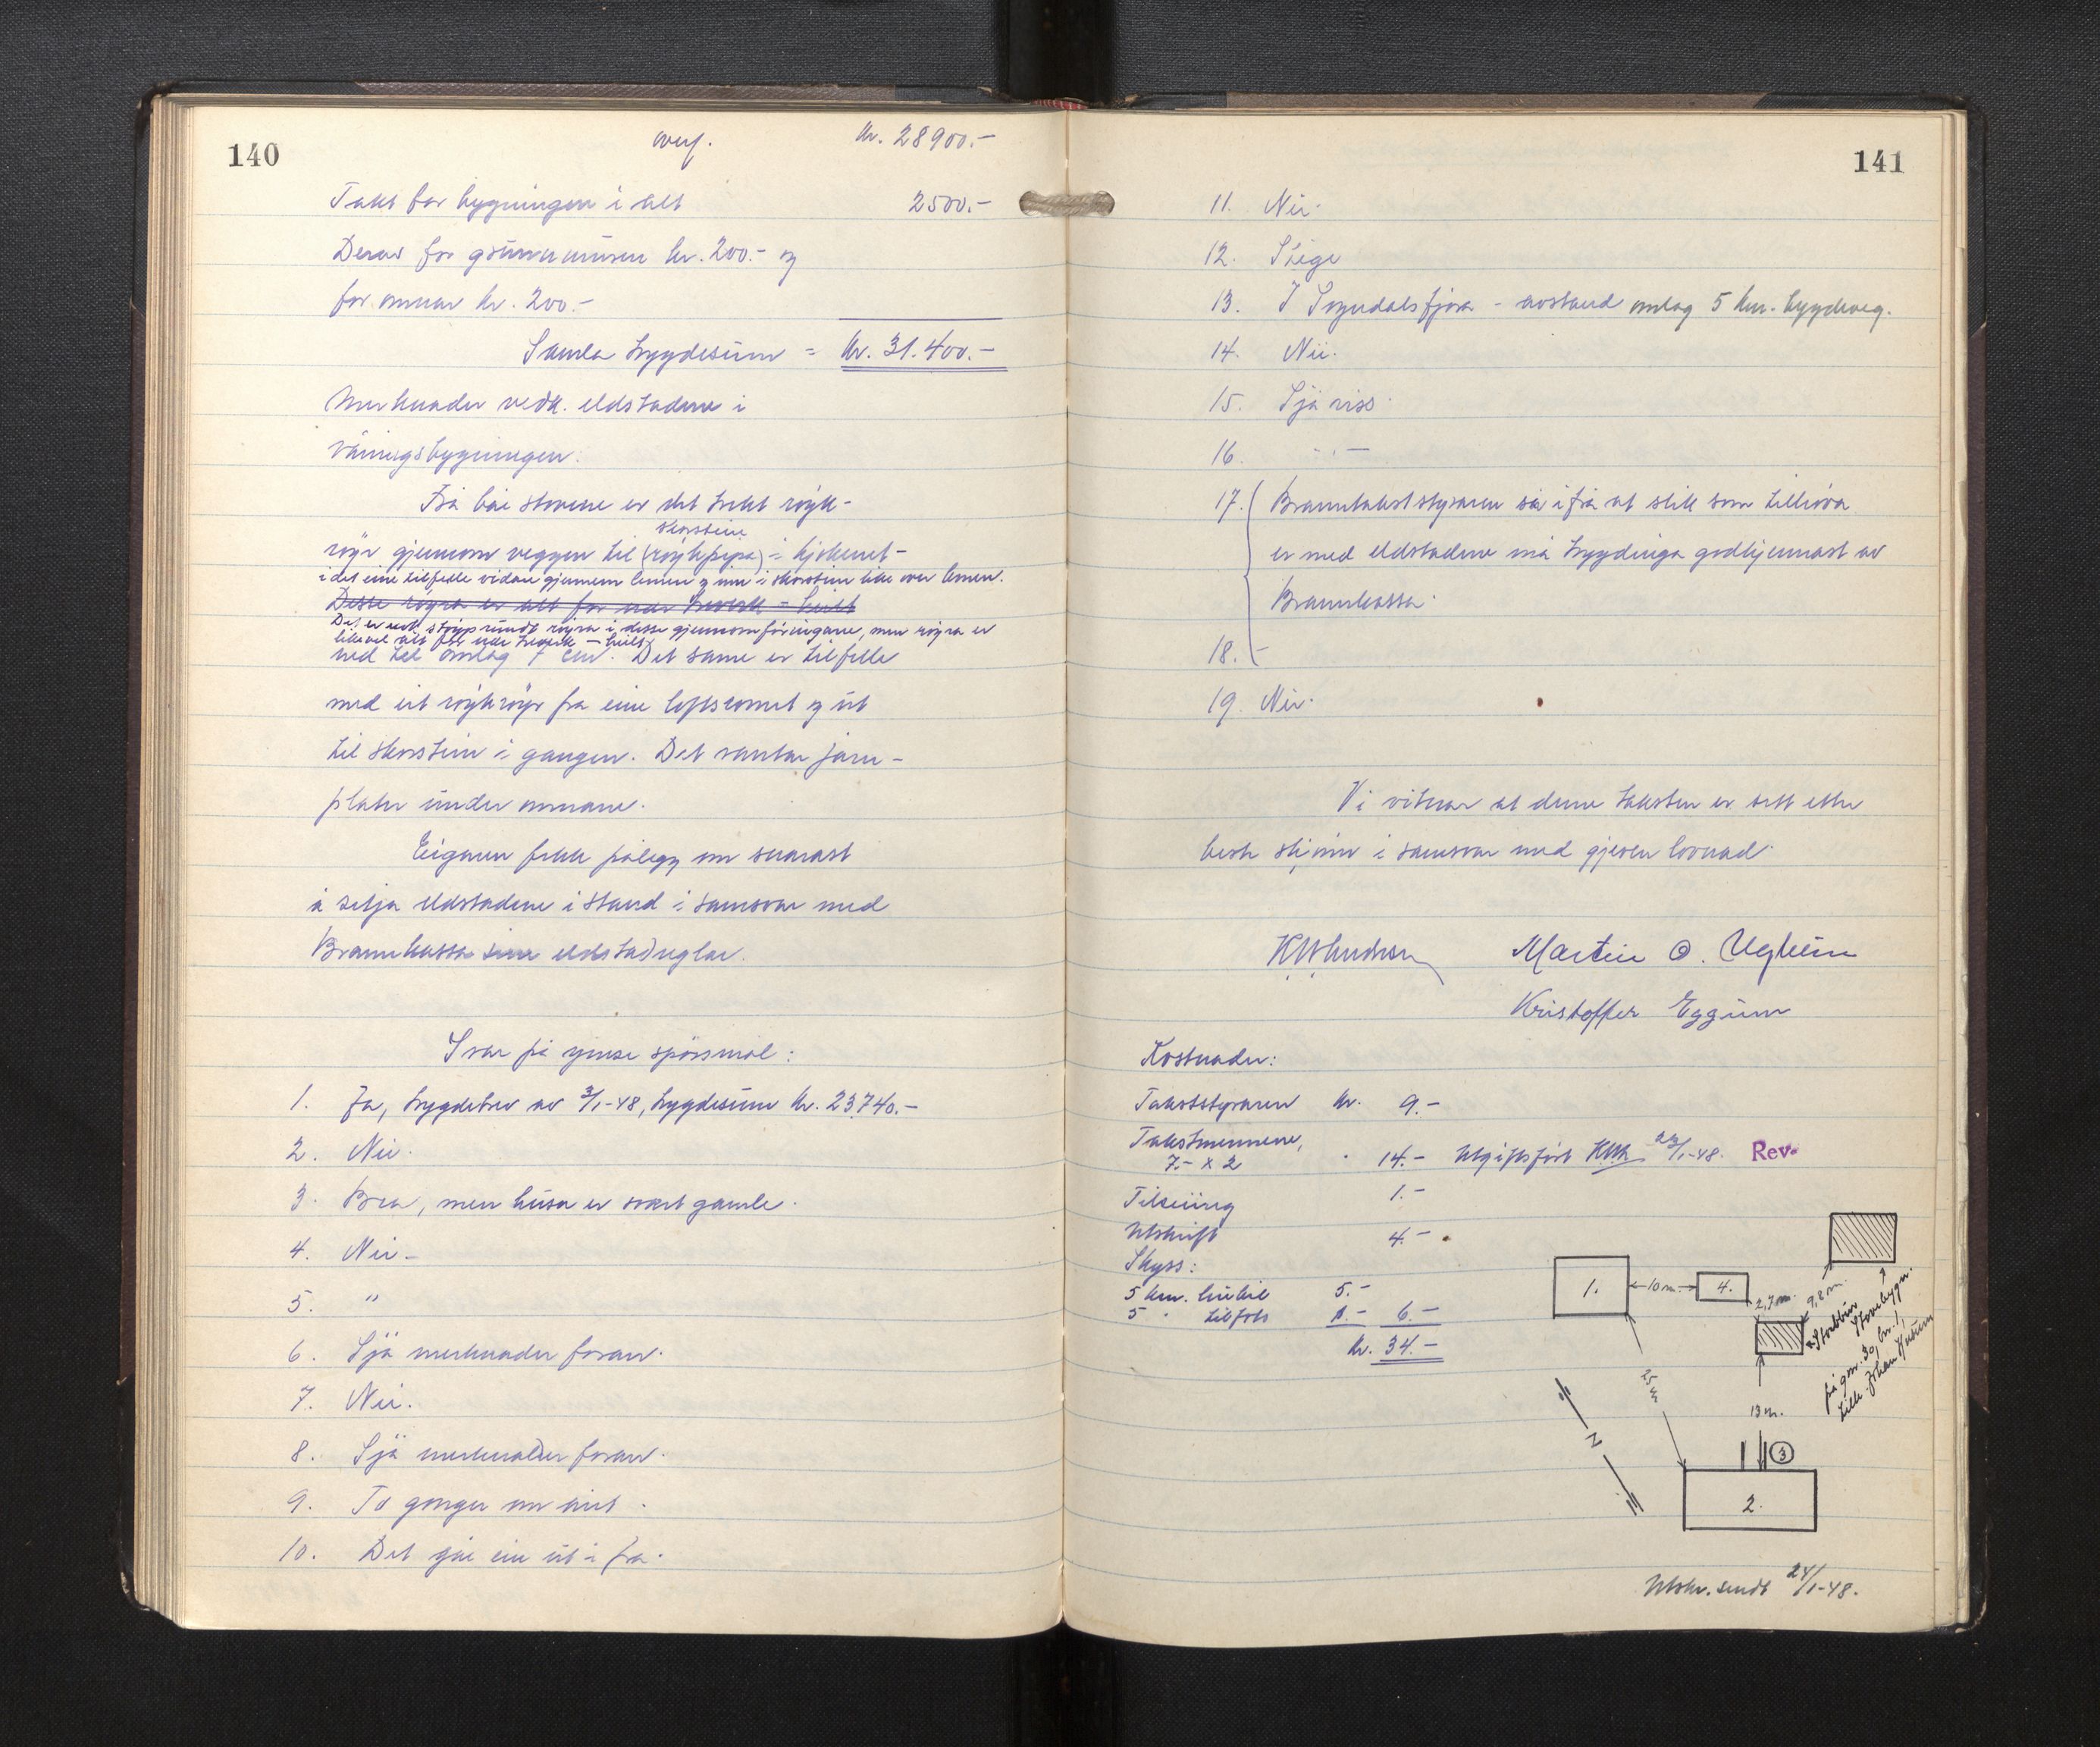 140
overf. kr. 28900.-
Takst for bygningen i alt 2500.-
Derav for grunnmuren kr. 200.- og
for omnar kr. 200.-
Samla trygdesum = kr. 31.400.-
Merknader vedk. eldstadene i
våningsbygningen.
Frå båe stovene er det trekt røyk-
skorstein
røyr gjennom veggen til (røykpipa) i kjøkenet -
i det eine tilfelle vidare gjennem lemen og inn i skorstein like over lemen.
Desse røyra er alt for nær treverk - heilt
Det er nok støyp rundt røyra i desse gjennomføringane, men røyra er
likevel alt for nær treverk - heilt
ned til omlag 7 cm. Det same er tilfelle
med eit røykrøyr fra eine loftsromet og ut
til skorstein i gangen. Det vantar jarn-
plater under omnane.
Eigaren fekk pålegg om snarast
å setja eldstadene i stand i samsvar med
Brannkassa sine eldstadreglar.
Svar på ymse spørsmål:
1. Ja, trygdebrev av 3/1-48, trygdesum kr. 23,740.-
2. Nei.
3. Bra, men husa er svært gamle.
4. Nei.
5. "
6. Sjå merknader foran.
7. Nei.
8. Sjå merknader foran.
9. To gonger om året.
10. Det går ein ut i frå.
141
11. Nei.
12. Stige
13. I Sogndalsfjøra - avstand omlag 5 km. bygdeveg.
14. Nei.
15. Sjå riss.
16. - " -
17. Branntakststyraren sa i frå at slik som tilhøva
er med eldstadene må trygdinga godkjennast av
Brannkassa.
18. -
19. Nei.
Vi vitnar at denne taksten er sett etter
beste skjønn i samsvar med gjeven lovnad.
Martin O. Ugheim
Kristoffer Eggum
Kostnader:
Takststyraren kr. 9.-
Takstmennene,
7.- x 2 " 14.- Utgiftsført 1-48. Rev.
Tilseiing 1.-
Utskrift 4.-
Skyss:
5 km. leiebil 5.-
5 " tilfots 1.- 6.-
kr. 34.-
1.
10 m.
4.
2,7 m.
9,8 m.
Stabbur
Stovebygn.
på gnr. 30, bnr. 1,
tilh. Johan Husum
25 m
13 m.
N
3
2.
Utskr. sendt 24/1-48.